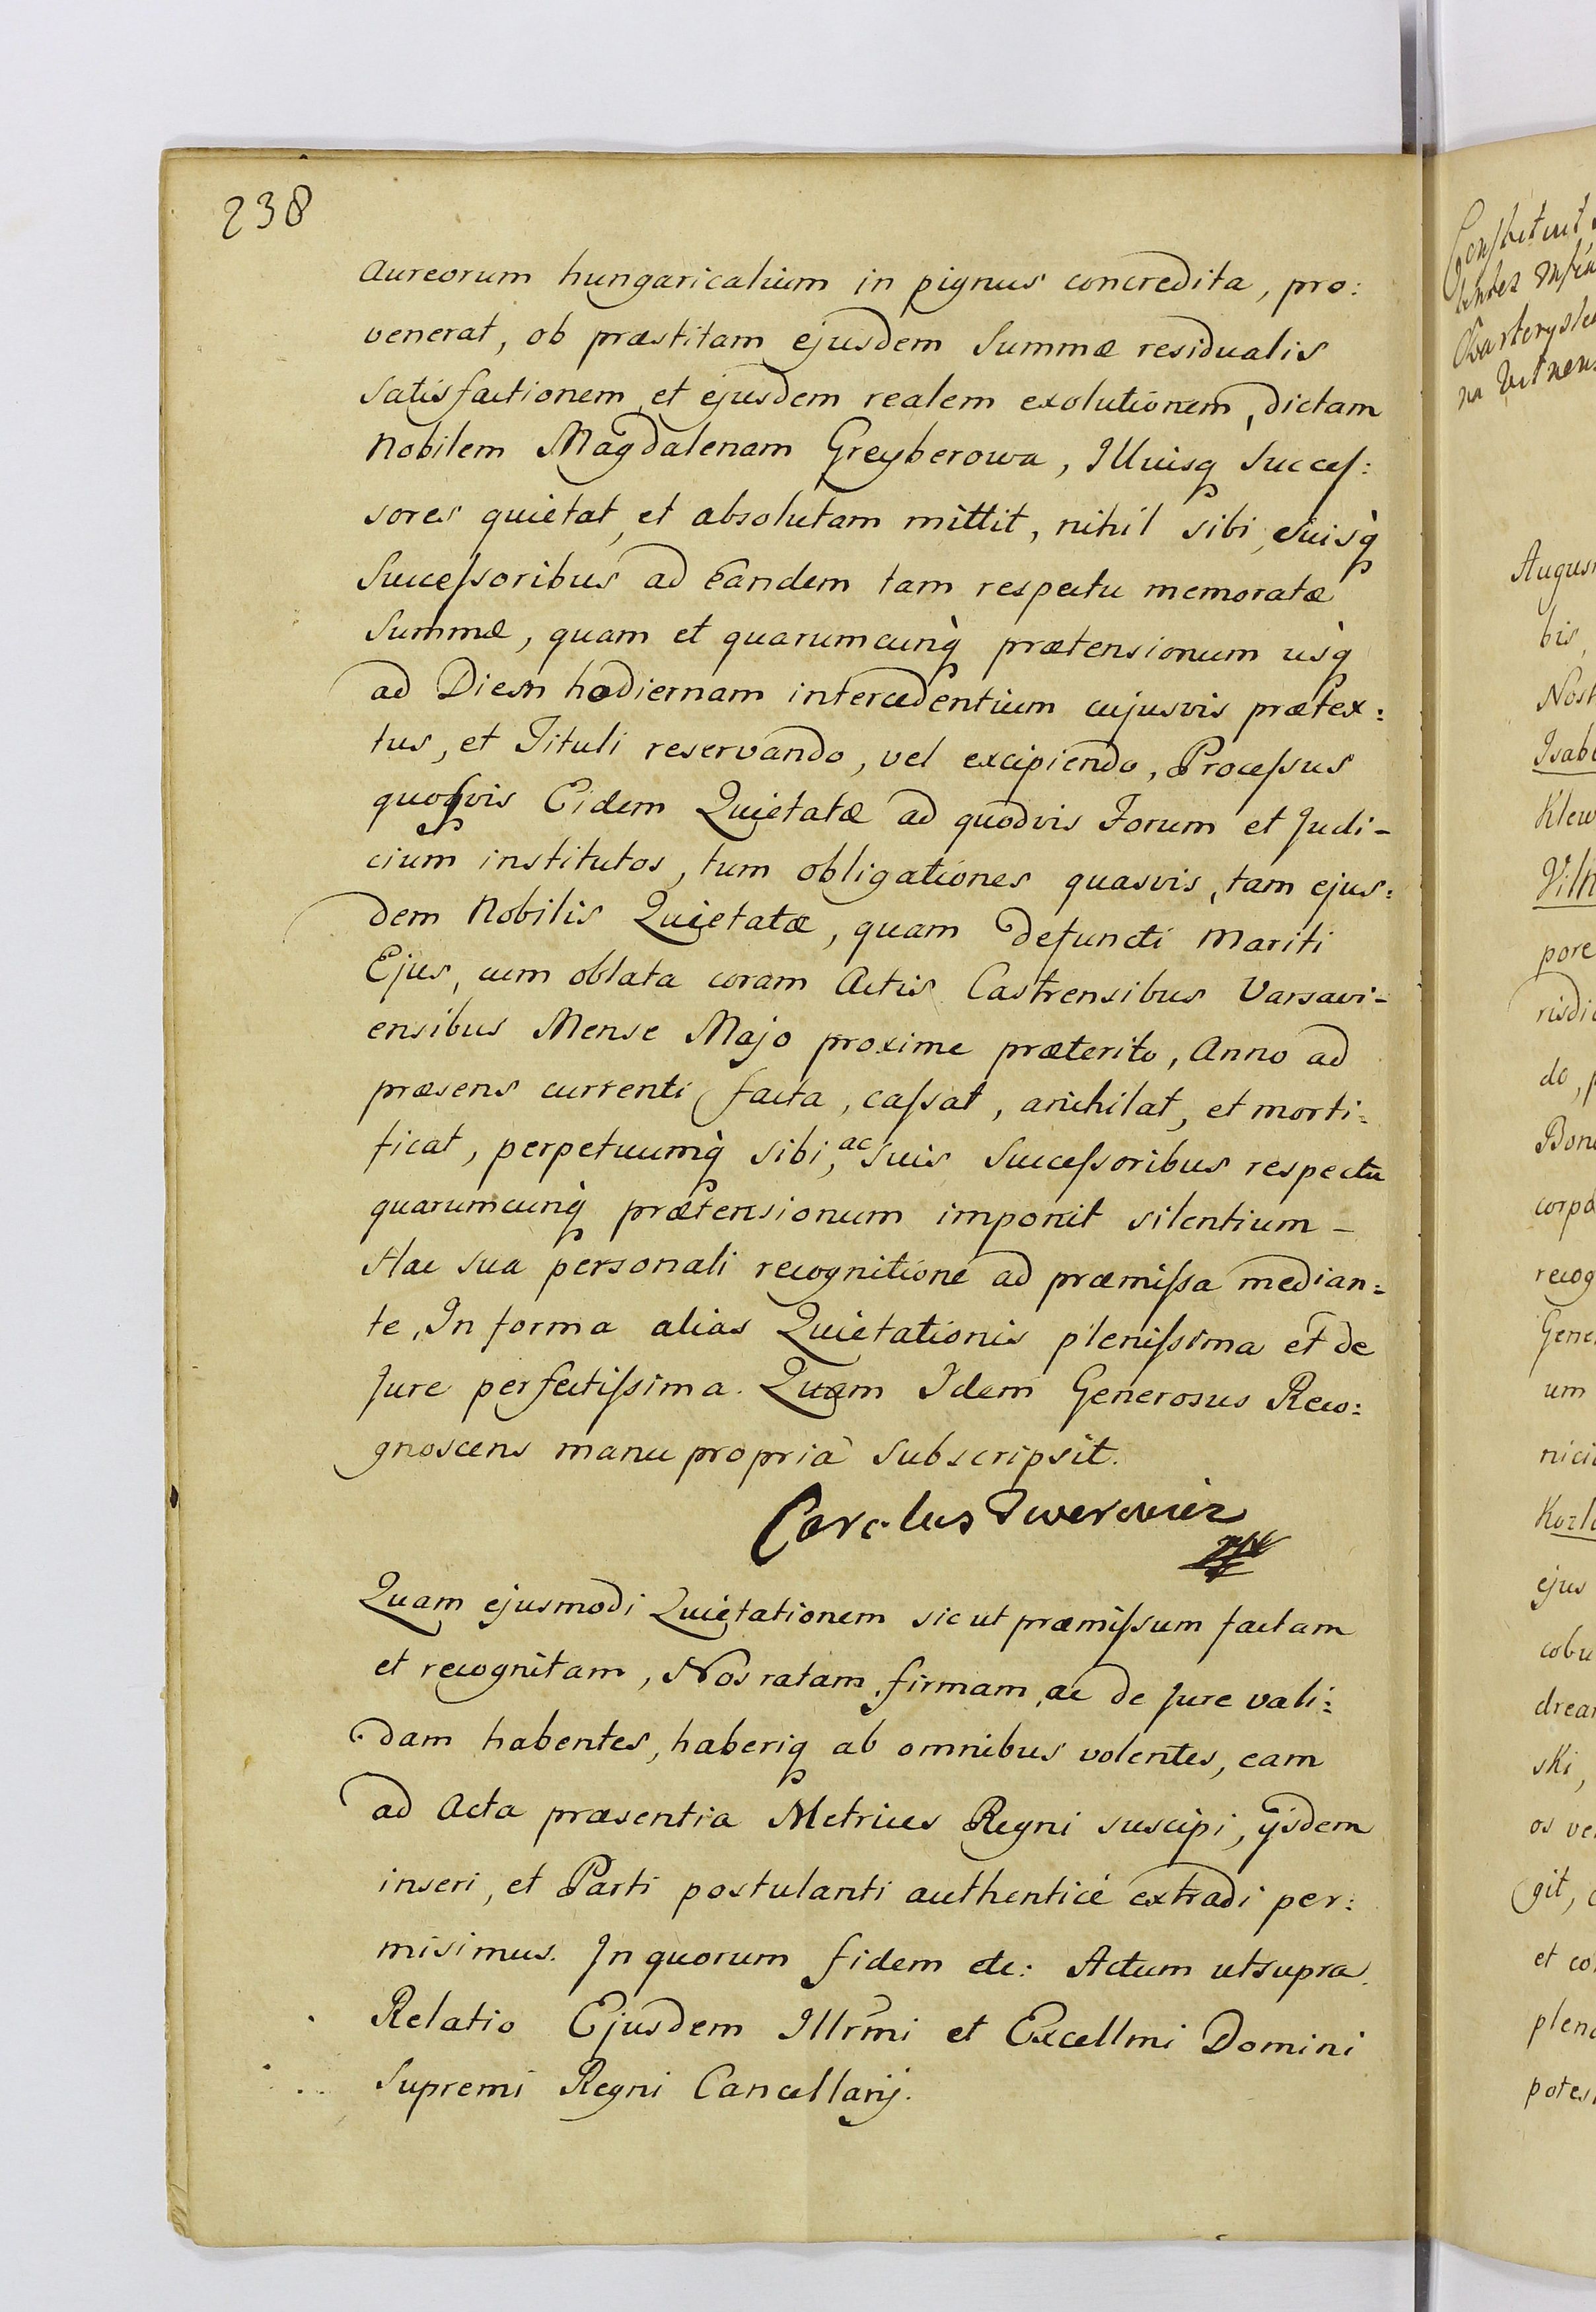 238
aureorum hungaricalium in pignus concredita, pro:
venerat, ob præstitam ejusdem Summæ residualis
satisfactionem et ejusdem realem exolutionem, dictam
Nobilem Magdalenam Greyberowa, Illiusq Succes:
sores quietat, et absolutam mittit, nihil sibi, suisq̀
Successoribus ad Eandem tam respectu memoratæ
Summæ, quam et quarumcunq̀ prætensionum usq̀
ad Diem hodiernam intercedentium cujusvis prætex:
tus, et Tituli reservando, vel excipiendo, Processus
quosvis Eidem Quietatæ ad quodvis Forum et Judi-
cium institutos, tum obligationes quasvis, tam ejus:
dem Nobilis Quietatæ, quam defuncti Mariti
Ejus, cum oblata coram Actis Castrensibus Varsavi-
ensibus Mense Majo proxime præterito, Anno ad
præsens currenti facta, cassat, anihilat, et morti:
ficat, perpetuumq̀ sibi, ac suis Successoribus respectu
quarumcunq̀ prætensionum imponit silentium -
Hac sua personali recognitione ad præmissa median:
te, In forma alias Quietationis plenissima et de
Jure perfectissima. Quam Idem Generosus Reco:
gnoscens manu propria Subscripsit.
Carolus
Quam ejusmodi Quietationem sic ut præmissum factam
et recognitam, Nos ratam, firmam, ac de Jure vali:
dam habentes, haberiq ab omnibus volentes, eam
ad Acta præsentia Metrices Regni suscipi, ijsdem
inseri, et Parti postulanti authenticé extradi per:
misimus. In quorum fidem etc: Actum ut supra.
Relatio Ejusdem Illrmi et Excellmi Domini
Supremi Regni Cancellarij.
Augus
bis,
Nost
Isabe
Klew
Viln
pore
risdic
do,
Bon
corp
recog
Gene
um
nici
Kozl
ejus
cobu
drea
ski,
os ve
git,
et co
plen
potes